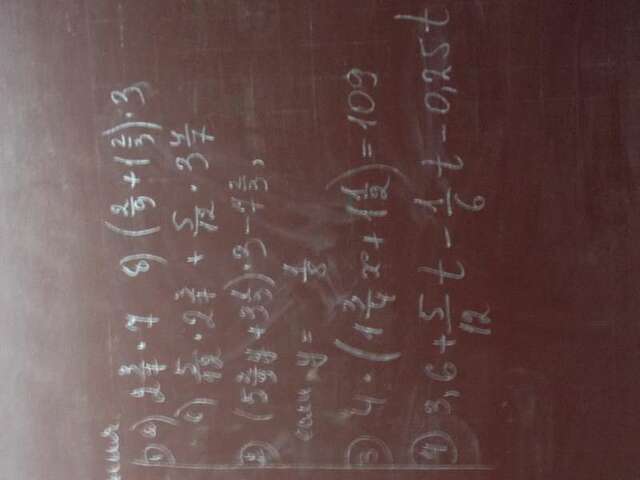 1) а) 2 3/7 · 7 б) (2/9 + 1 2/3) · 3
с) 5/12 · 2 3/7 + 5/12 · 3 4/7
2) (5 2/9 y + 3 1/3) · 3 − 7 2/3,
если y = 1/8
3) 4 · (1 3/4 x + 1 1/2) = 109
4) 3,6 + 5/12 t − 1/6 t − 0,25t